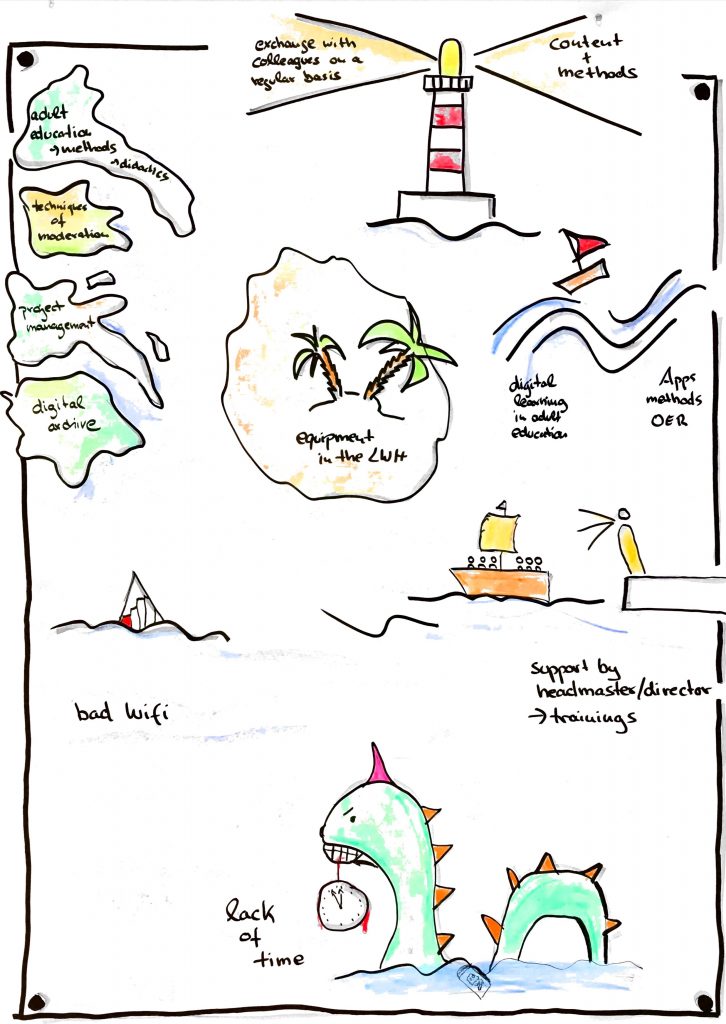 exchange with
colleagues on a
regular basis
content
+
methods
adult
education
→ methods
→ didactics
techniques
of
moderation
project
management
digital
archive
equipment
in the LWH
digital
learning
in adult
education
Apps
methods
OER
support by
headmaster/director
→ trainings
bad Wifi
lack
of
time